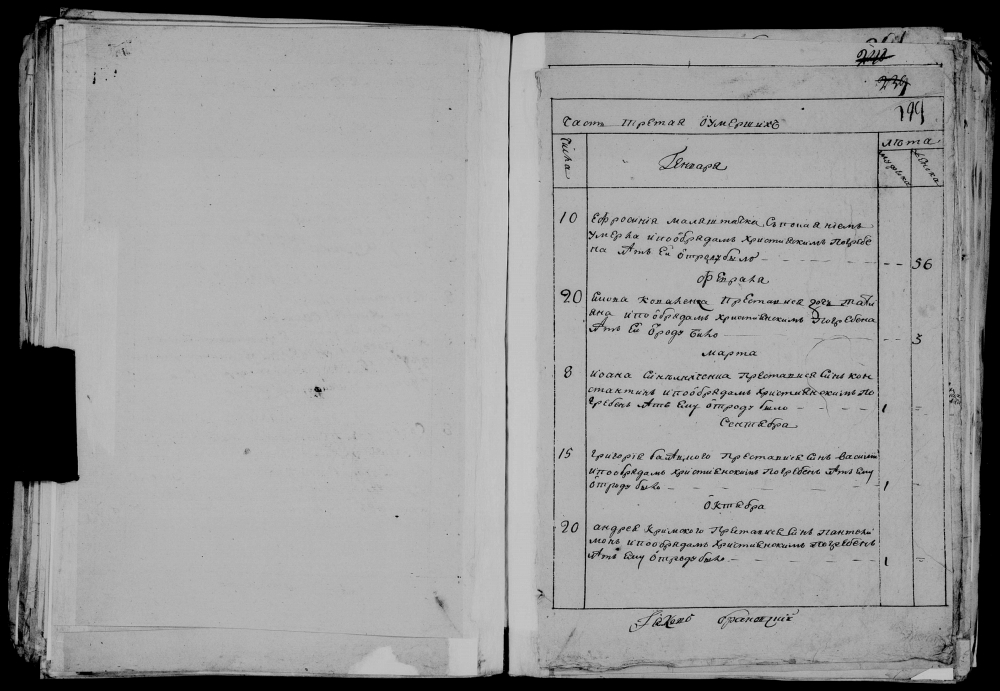 239
199
Часть третая оумершихъ
числа
лѣта
мужска
женска
Генваря
10 Ефросиния Малашта с покаяниемъ
умерла и по обрядамъ христианскимъ погребе
на лѣтъ ей отроду было 56
Февраля
20 преставися дочь Татия
на и по обрядамъ христианскимъ погребена
лѣтъ ей отроду было 3
Марта
8 Иоана преставися сынъ Кон
стантинъ и по обрядамъ христианскимъ по
гребенъ лѣтъ ему отроду было 1
Сентебра
15 Григория преставися сынъ Василий
и по обрядамъ христианскимъ погребенъ лѣтъ ему
отроду было 1
Октебра
20 Андрея Кримского преставися сынъ Пантели
монъ и по обрядамъ христианскимъ погребенъ
лѣтъ ему отроду было 1